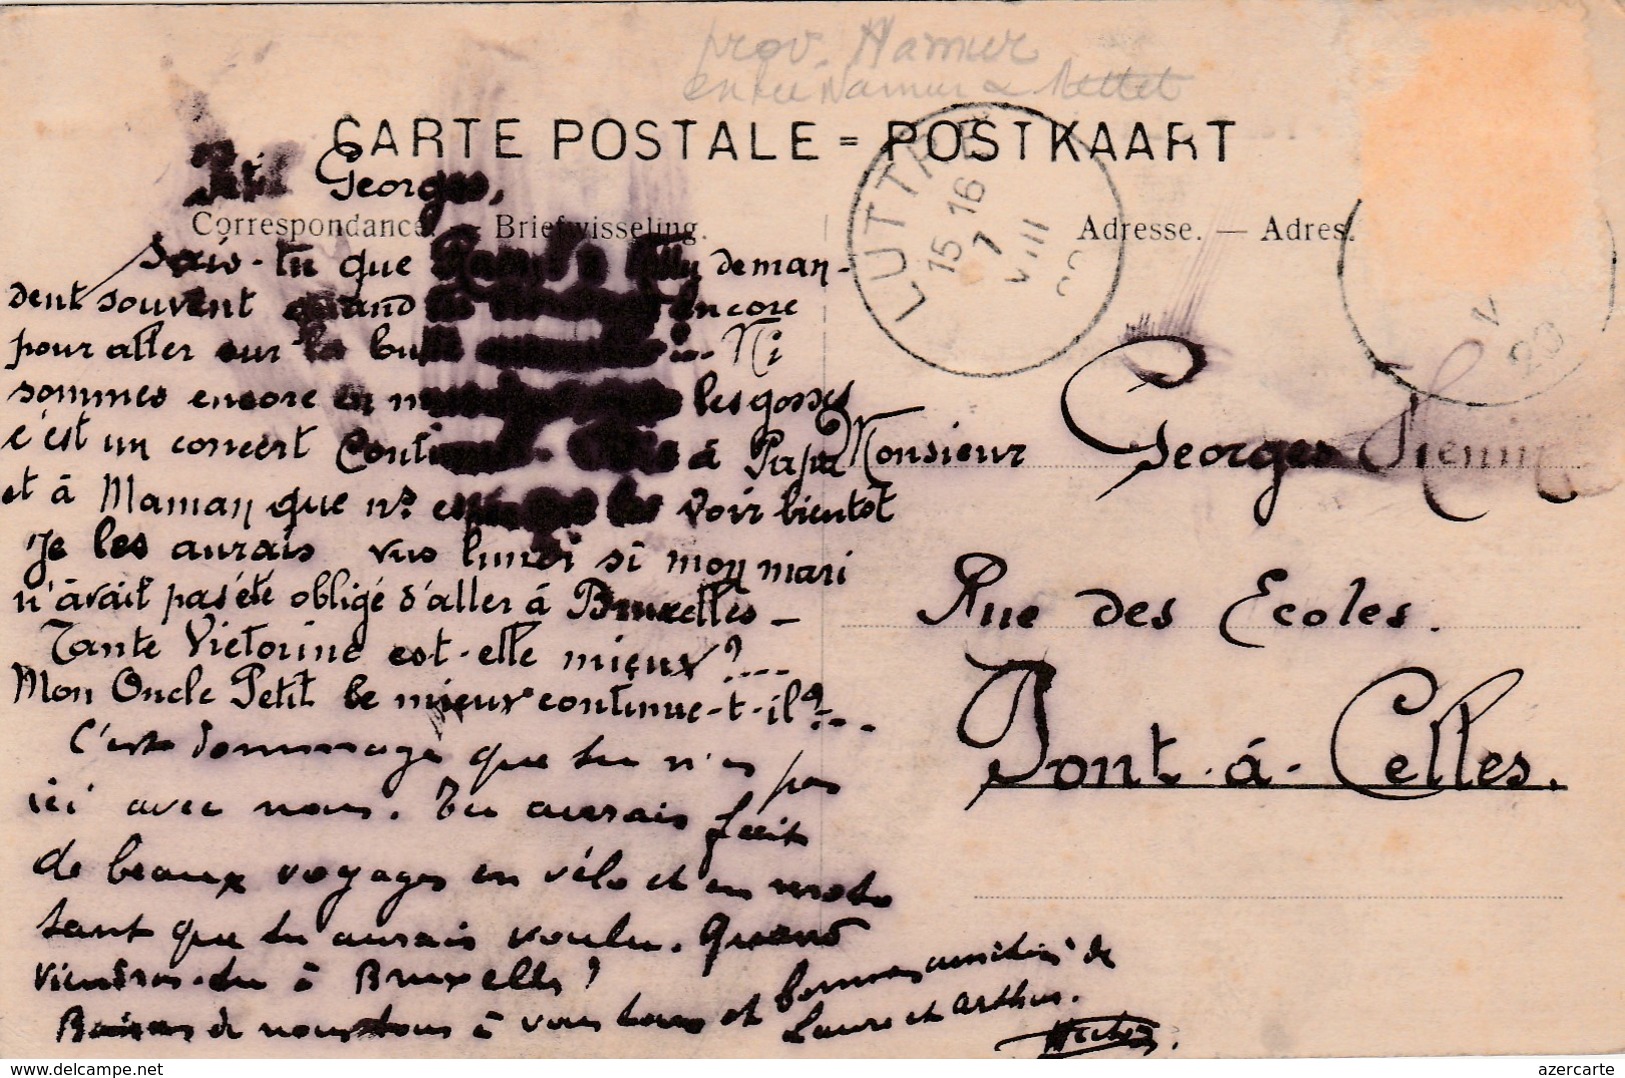 prov. Namur
entre Namur & Mettet
CARTE POSTALE = POSTKAART
Petit Georges,
Correspondance. — Briefwisseling.
Adresse. — Adres.
LUTTRE
15-16
7
VIII
V
20
Sais-tu que deman-
dent souvent quand encore
pour aller sur la Ni
sommes encore en les gosses
c'est un concert à Papa
et à Maman que ns. voir bientot
Je les aurais vus lundi si mon mari
n'avait pas été obligé d'aller à Bruxelles –
Tante Victorine est-elle mieux ?...
Mon Oncle Petit le mieux continue-t-il ?...
C'est dommage que tu n'es pas
ici avec nous. Tu aurais fait
de beaux voyages en vélo et en moto
tant que tu aurais voulu. Quand
viendras-tu à Bruxelles ?
de nous tous à vous tous et bonnes amitiés de
Laure et Arthur.
Monsieur Georges
Rue des Ecoles.
Pont-à-Celles.
delcampe.net
azercarte